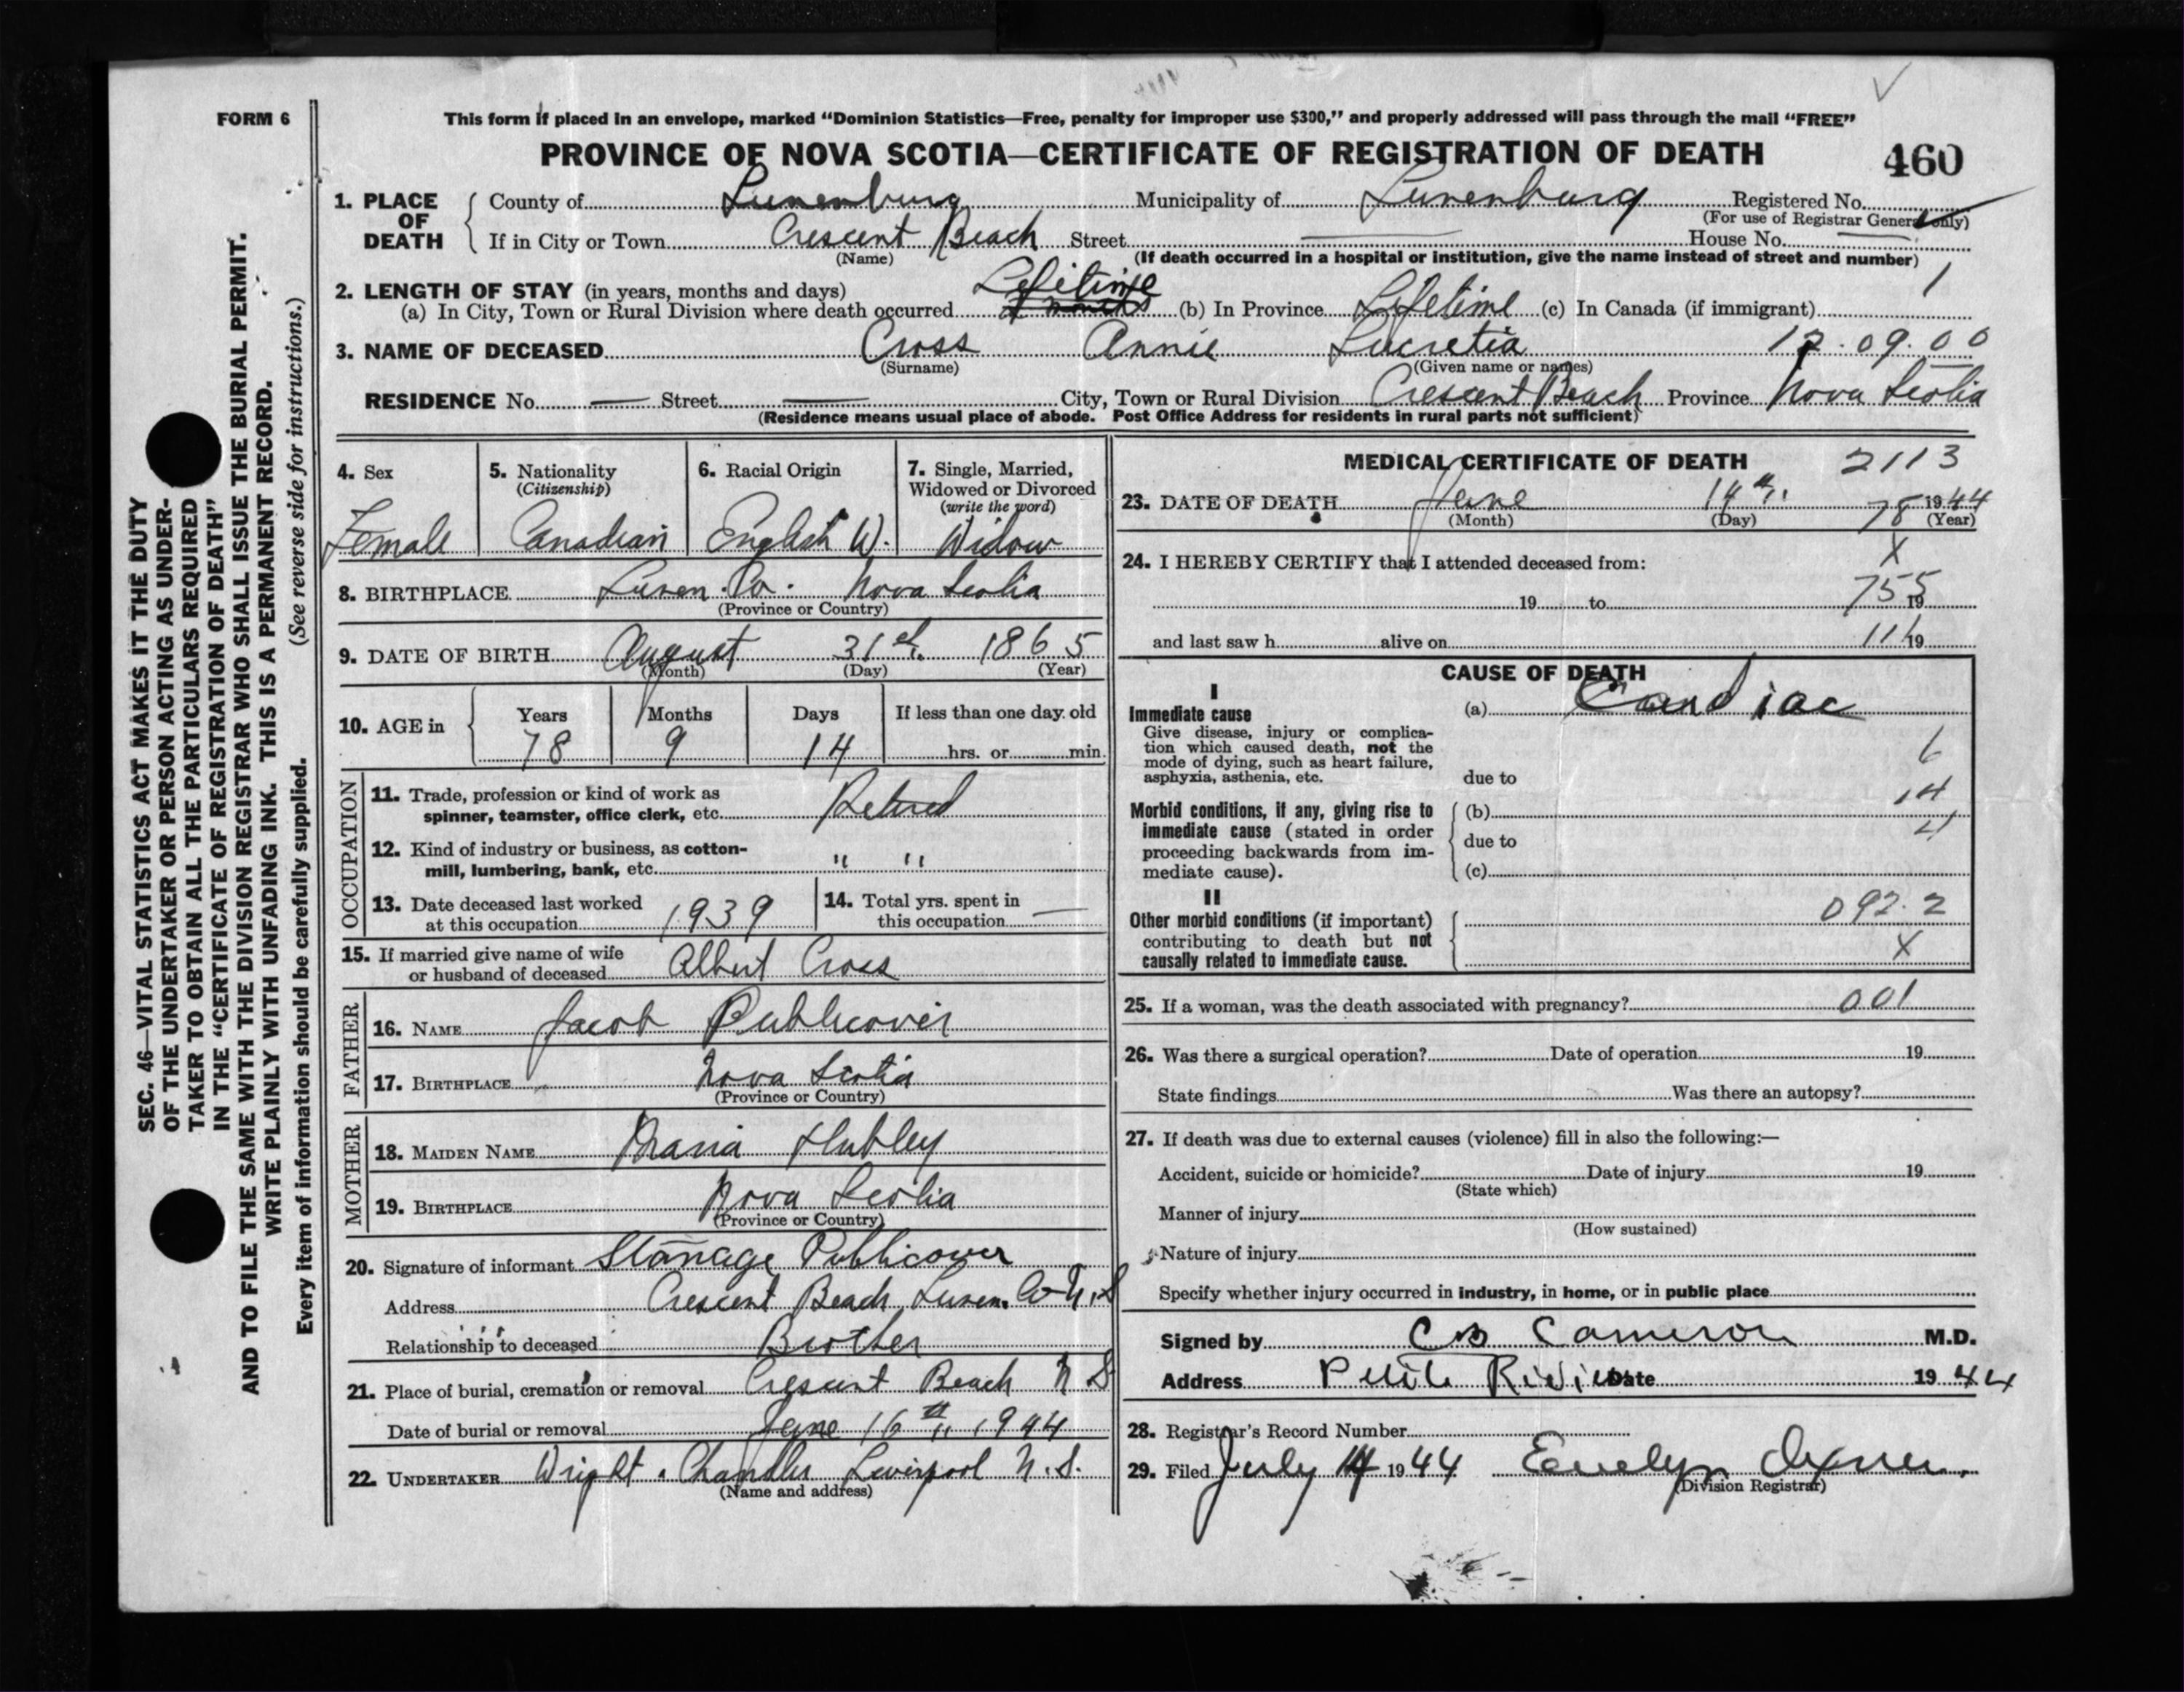 FORM 6
This form if placed in an envelope, marked "Dominion Statistics—Free, penalty for improper use $300," and properly addressed will pass through the mail "FREE"
PROVINCE OF NOVA SCOTIA—CERTIFICATE OF REGISTRATION OF DEATH 460
1. PLACE OF DEATH
County of Lunenburg Municipality of Lunenburg Registered No.
(For use of Registrar General only)
If in City or Town Crescent Beach Street — House No. —
(Name) (If death occurred in a hospital or institution, give the name instead of street and number)
2. LENGTH OF STAY (in years, months and days) Lifetime 1
(a) In City, Town or Rural Division where death occurred (b) In Province Lifetime (c) In Canada (if immigrant)
3. NAME OF DECEASED Cross Annie Lucretia 12.09.00
(Surname) (Given name or names)
RESIDENCE No. — Street — City, Town or Rural Division Crescent Beach Province Nova Scotia
(Residence means usual place of abode. Post Office Address for residents in rural parts not sufficient)
4. Sex
Female
5. Nationality
(Citizenship)
Canadian
6. Racial Origin
English W.
7. Single, Married,
Widowed or Divorced
(write the word)
Widow
8. BIRTHPLACE Lunen. Co. Nova Scotia
(Province or Country)
9. DATE OF BIRTH August 31st. 1865
(Month) (Day) (Year)
10. AGE in Years Months Days If less than one day old
78 9 14 hrs. or min.
OCCUPATION
11. Trade, profession or kind of work as
spinner, teamster, office clerk, etc. Retired
12. Kind of industry or business, as cotton-
mill, lumbering, bank, etc. " "
13. Date deceased last worked
at this occupation 1939
14. Total yrs. spent in
this occupation —
15. If married give name of wife
or husband of deceased Albert Cross
FATHER
16. NAME Jacob Publicover
17. BIRTHPLACE Nova Scotia
(Province or Country)
MOTHER
18. MAIDEN NAME Maria Hubley
19. BIRTHPLACE Nova Scotia
(Province or Country)
20. Signature of informant Stanage Publicover
Address Crescent Beach, Lunen. Co N.S
Relationship to deceased Brother
21. Place of burial, cremation or removal Crescent Beach N S
Date of burial or removal June 16th 1944
22. UNDERTAKER Wright. Chandler Liverpool N.S.
(Name and address)
MEDICAL CERTIFICATE OF DEATH 2113
23. DATE OF DEATH June 14th 78 1944
(Month) (Day) (Year)
24. I HEREBY CERTIFY that I attended deceased from: X
19 to 755 19
and last saw h alive on 111 19
CAUSE OF DEATH
I
Immediate cause
Give disease, injury or complica-
tion which caused death, not the
mode of dying, such as heart failure,
asphyxia, asthenia, etc.
(a) Cardiac
6
due to
14
Morbid conditions, if any, giving rise to
immediate cause (stated in order
proceeding backwards from im-
mediate cause).
(b)
4
due to
(c)
II
Other morbid conditions (if important)
contributing to death but not
causally related to immediate cause.
092.2
X
25. If a woman, was the death associated with pregnancy? 001
26. Was there a surgical operation? Date of operation 19
State findings Was there an autopsy?
27. If death was due to external causes (violence) fill in also the following:—
Accident, suicide or homicide? Date of injury 19
(State which)
Manner of injury
(How sustained)
Nature of injury
Specify whether injury occurred in industry, in home, or in public place
Signed by C B Cameron M.D.
Address Petite Riviere Date 1944
28. Registrar's Record Number
29. Filed July 14 1944 Evelyn
(Division Registrar)
SEC. 46—VITAL STATISTICS ACT MAKES IT THE DUTY
OF THE UNDERTAKER OR PERSON ACTING AS UNDER-
TAKER TO OBTAIN ALL THE PARTICULARS REQUIRED
IN THE "CERTIFICATE OF REGISTRATION OF DEATH"
AND TO FILE THE SAME WITH THE DIVISION REGISTRAR WHO SHALL ISSUE THE BURIAL PERMIT.
WRITE PLAINLY WITH UNFADING INK. THIS IS A PERMANENT RECORD.
Every item of information should be carefully supplied. (See reverse side for instructions.)